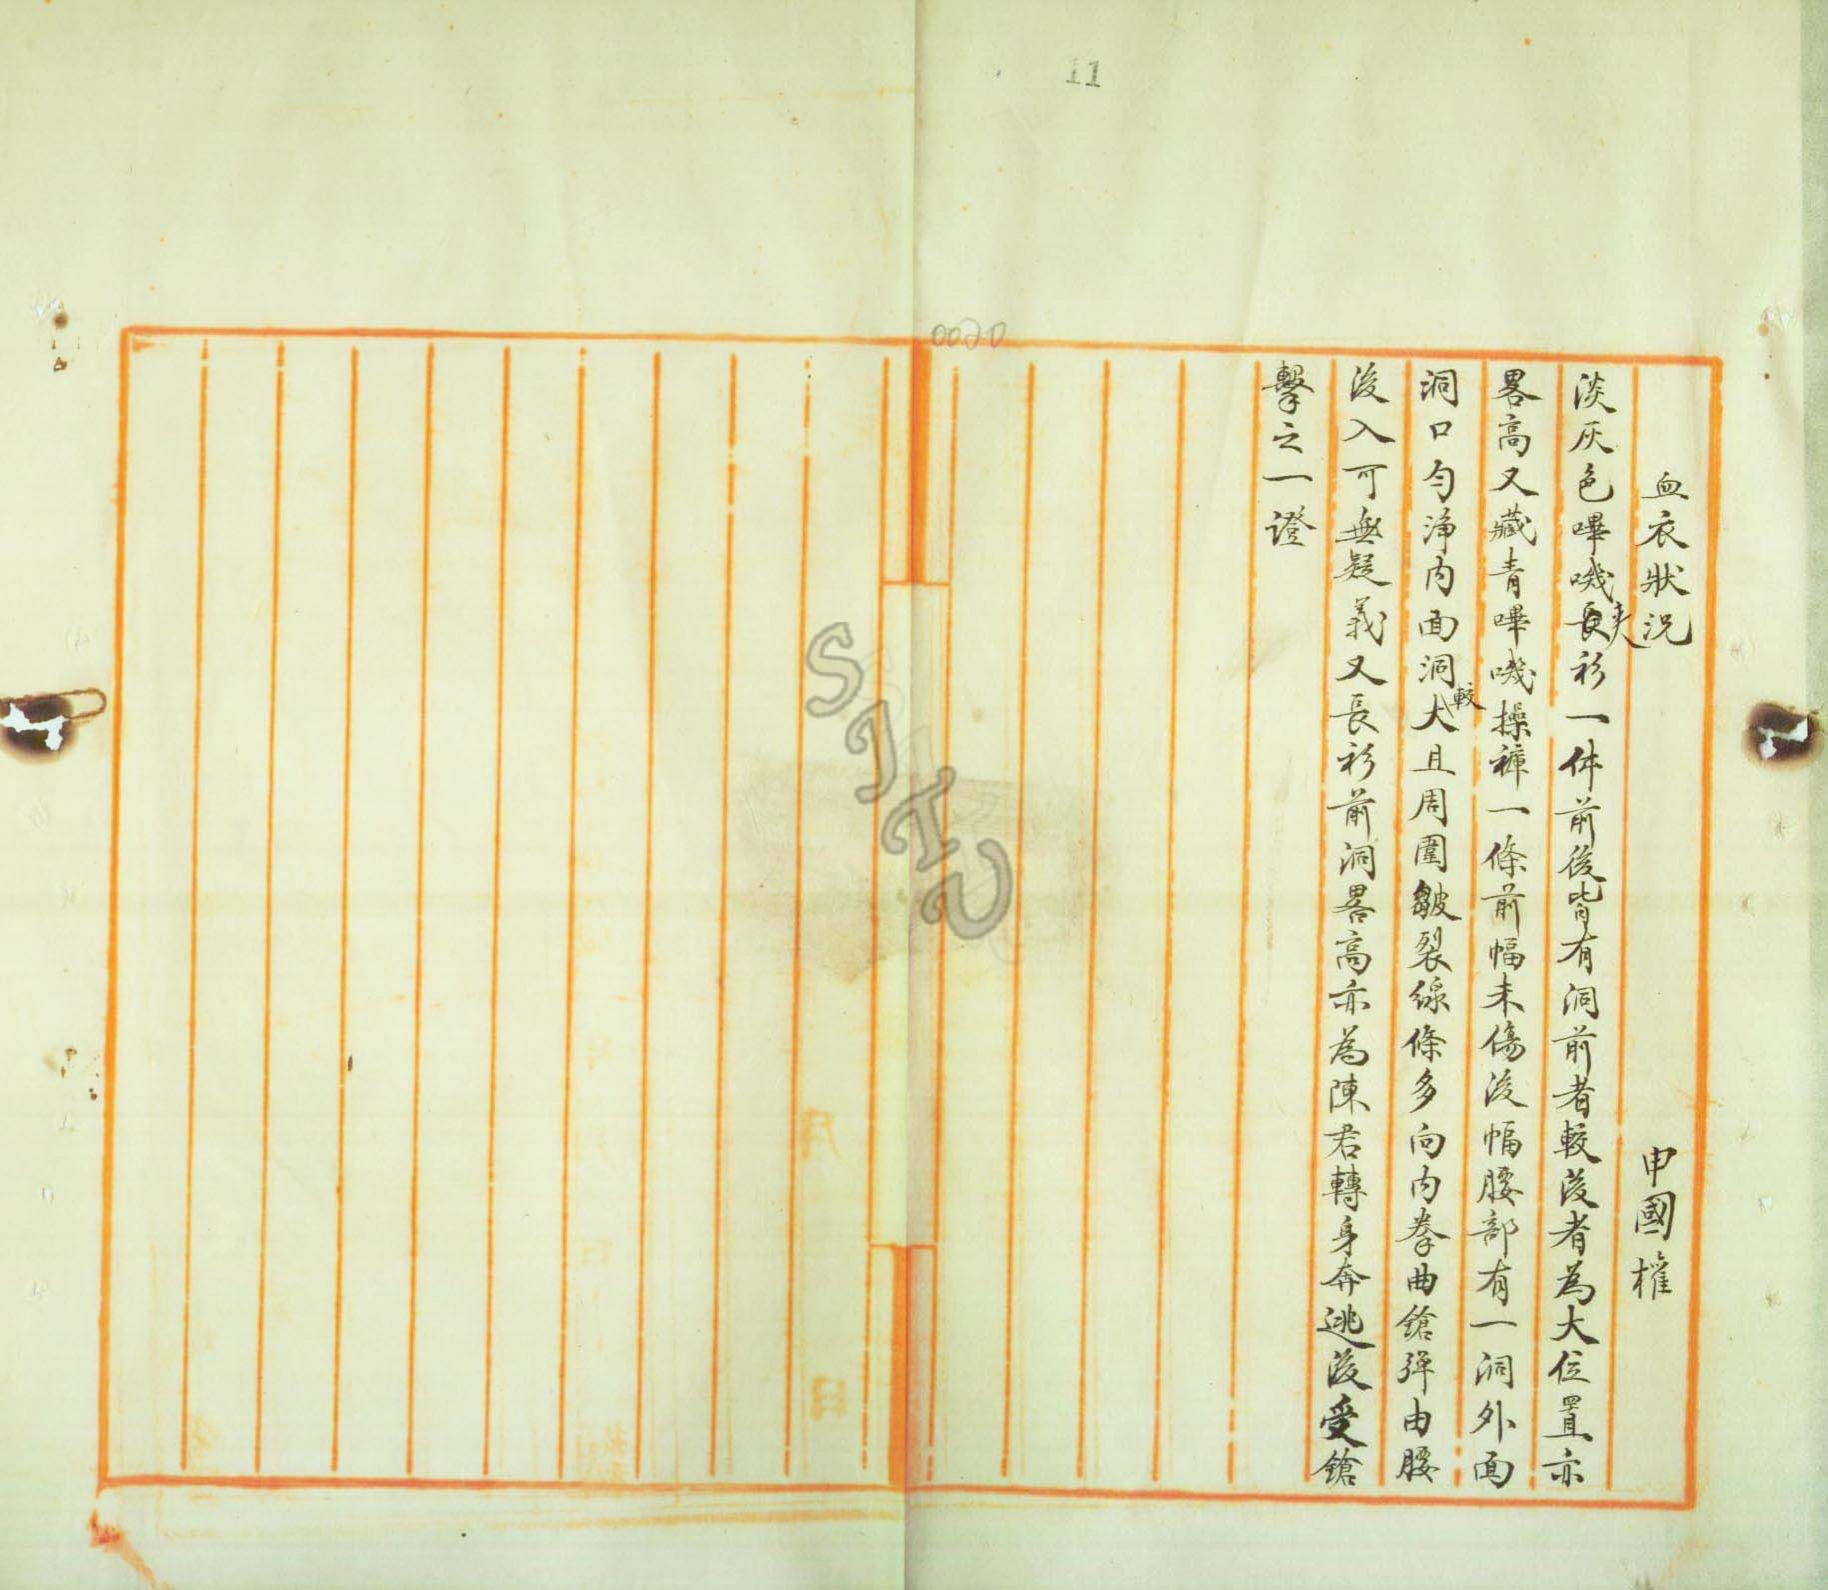 11
0020
血衣狀況 申國權
淡灰色嗶嘰夾衫一件前後皆有洞前者較後者為大位置亦
畧高又藏青嗶嘰操褲一條前幅未傷後幅腰部有一洞外面
洞口勻淨內面洞較大且周圍皺裂線條多向內拳曲鎗彈由腰
後入可無疑義又長衫前洞畧高亦為陳君轉身奔逃後受鎗
擊之一證
月
日